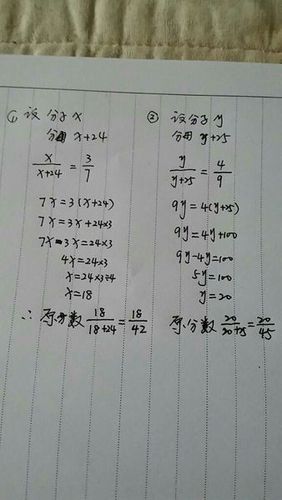 ① 设 分子 x
分母 x+24
x/x+24 = 3/7
7x=3(x+24)
7x=3x+24×3
7x-3x=24×3
4x=24×3
x=24×3÷4
x=18
∴ 原分数 18/18+24=18/42
② 设分子 y
分母 y+25
y/y+25 = 4/9
9y=4(y+25)
9y=4y+100
9y-4y=100
5y=100
y=20
原分数 20/20+25=20/45